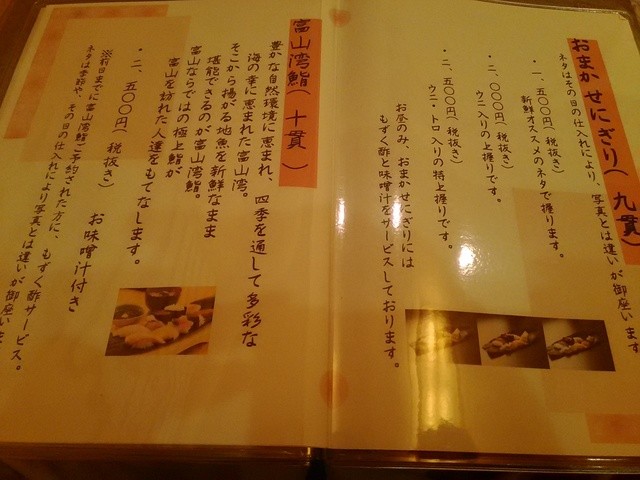 おまかせにぎり（九貫）
ネタはその日の仕入れにより、写真とは違いが御座います
・一、五〇〇円（税抜き）
新鮮オススメのネタで握ります。
・二、〇〇〇円（税抜き）
ウニ入りの上握りです。
・二、五〇〇円（税抜き）
ウニ・トロ入りの特上握りです。
お昼のみ、おまかせにぎりには
もずく酢と味噌汁をサービスしております。
富山湾鮨（十貫）
豊かな自然環境に恵まれ、四季を通して多彩な
海の幸に恵まれた富山湾。
そこから揚がる地魚を新鮮なまま
堪能できるのが富山湾鮨。
富山ならではの極上鮨が
富山を訪れた人達をもてなします。
・二、五〇〇円（税抜き）
お味噌汁付き
※前日までに富山湾鮨ご予約された方に、もずく酢サービス。
ネタは季節や、その日の仕入れにより写真とは違いが御座いま